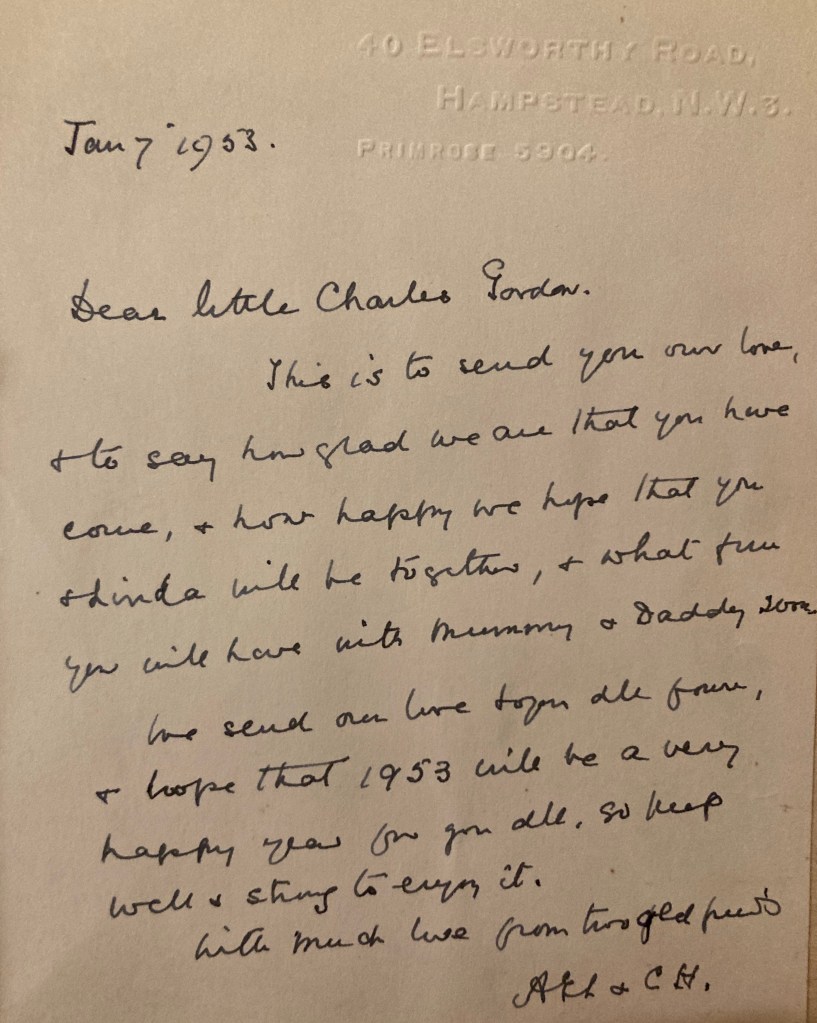 40 ELSWORTHY ROAD,
HAMPSTEAD, N.W.3.
PRIMROSE 5904.
Jan 7 1953.
Dear little Charles Gordon.
This is to send you our love,
& to say how glad we are that you have
come, & how happy we hope that you
& Linda will be together, & what fun
you will have with Mummy & Daddy
We send our love to you all four,
& hope that 1953 will be a very
happy year for you all. So keep
well & strong to enjoy it.
With much love from two old
& C H.